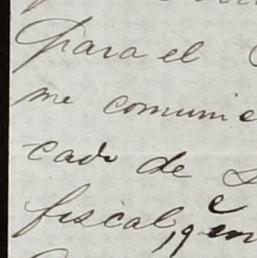 para el
me comuni
cado de
fiscal, en